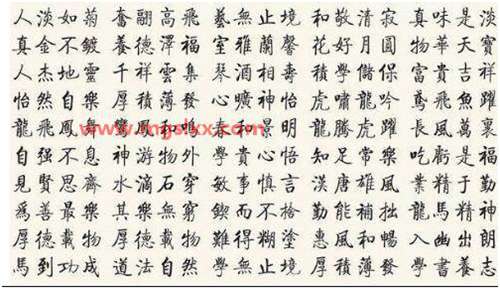 人淡如菊 奮翮高飛 藝無止境 和敬清寂 真味是淡
真金不鍍 養德澤福 室雅蘭馨 花好月圓 物華天寶
人杰地靈 千祥雲集 琴酒相壽 積學儲保 富貴吉祥
怡然自樂 厚積薄發 心曠神怡 虎嘯龍吟 鳶飛魚躍
龍飛鳳舞 鳳和鳴 春和景明 龍騰虎躍 長風萬裏
www.mgslxx.com
自强不息 神游物外 學貴心悟 知足常樂 吃虧是福
見賢思齊 水滴石穿 敏事慎言 漢唐雄風 業精于勤
爲善最樂 其樂無窮 鍥而不捨 勤能補拙 龍馬精神
厚德載物 厚德載物 難得糊塗 惠風和暢 入幽出朗
馬到功成 道法自然 學無止境 厚積薄發 學書養志